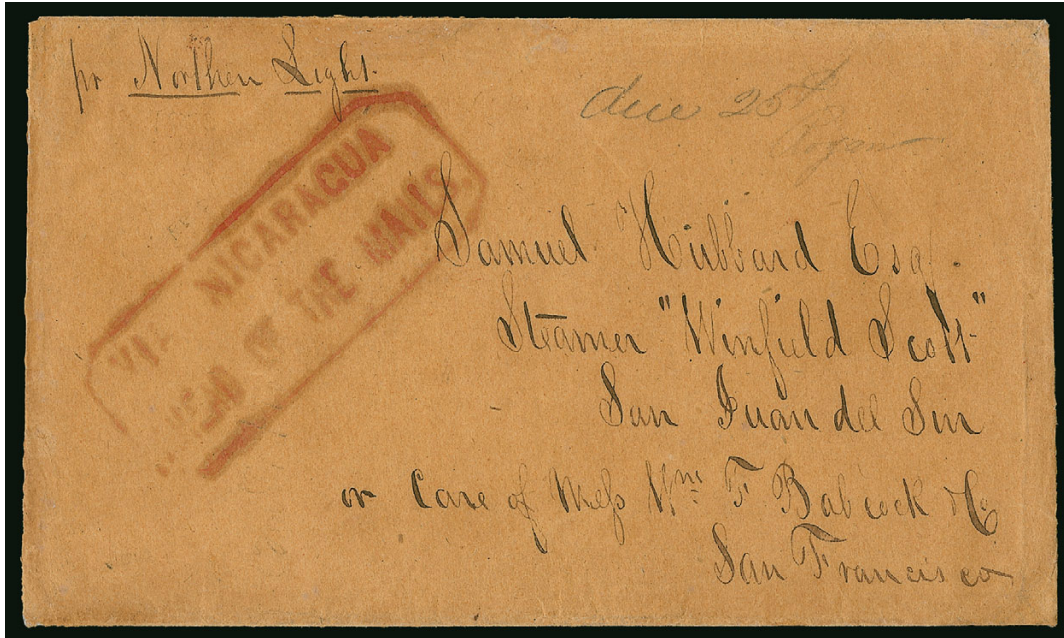 pr Northen Light.
due 25
VIA NICARAGUA
AHEAD OF THE MAILS.
Samuel Hubbard Esq.
Steamer "Winfield Scott"
San Juan del Sur
or Care of Mess Wm. F Babcock & Co
San Francisco